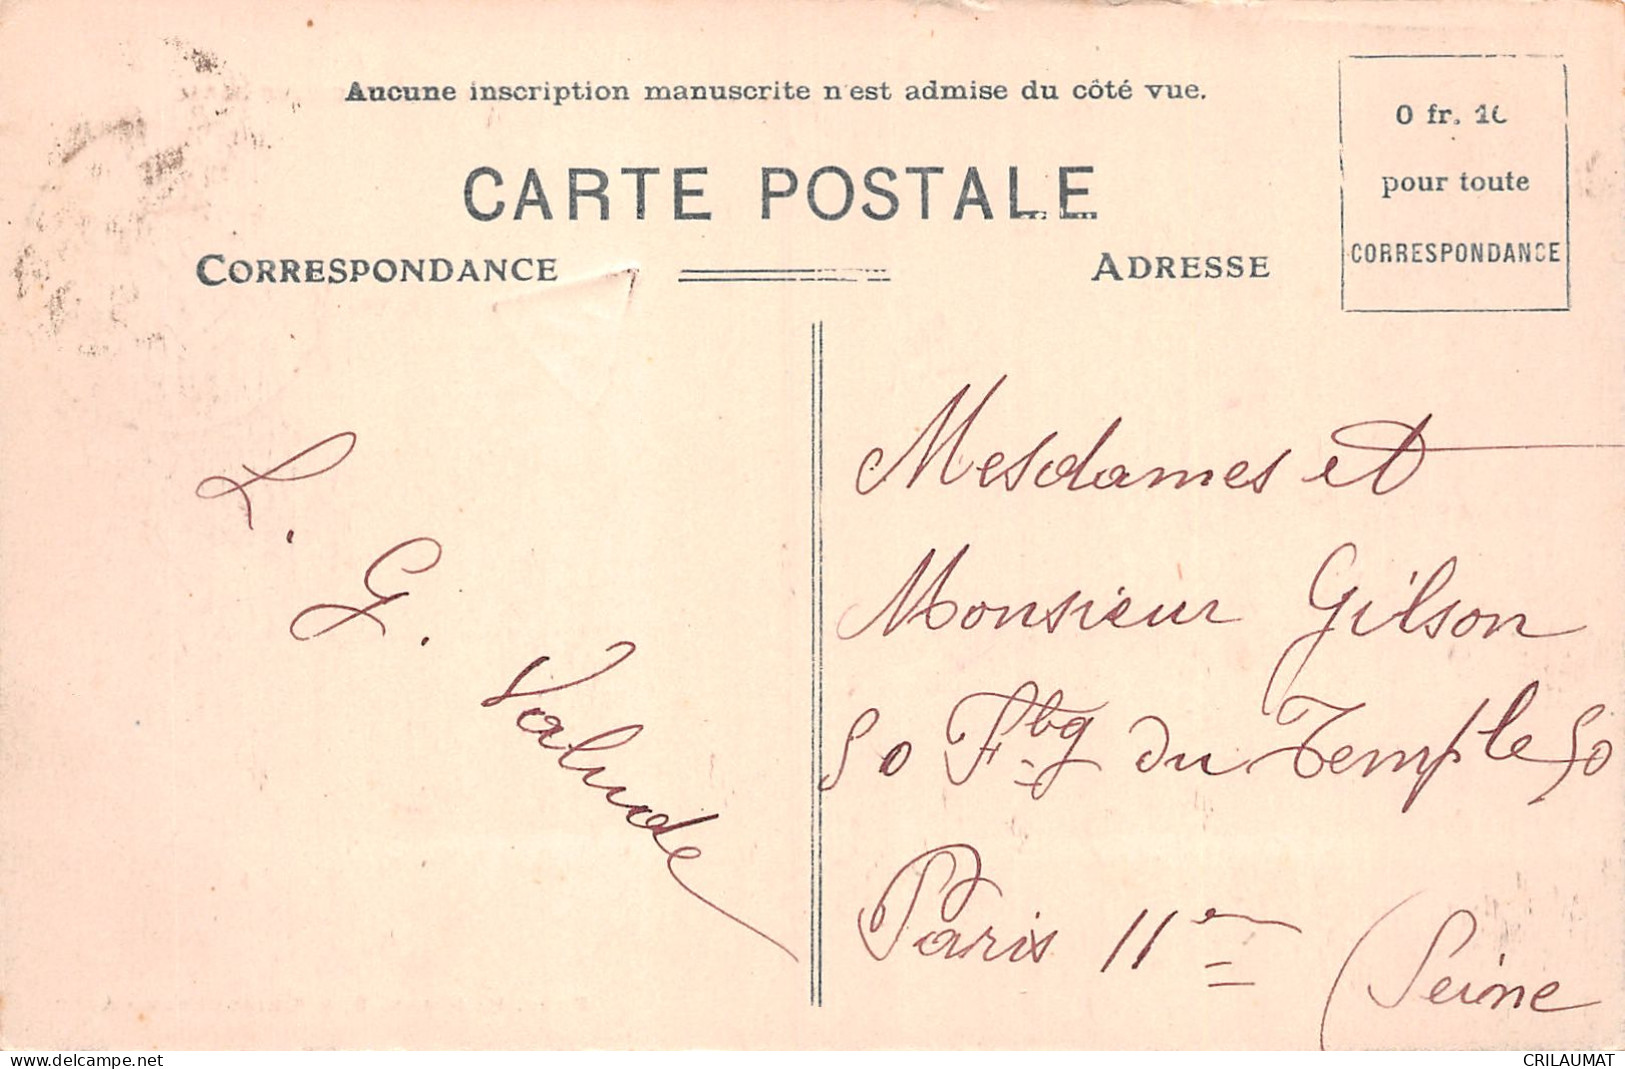 Aucune inscription manuscrite n'est admise du côté vue.
CARTE POSTALE
CORRESPONDANCE
ADRESSE
0 fr. 10
pour toute
CORRESPONDANCE
L. G. Valude
Mesdames et
Monsieur Gilson
50 Fbg du Temple 50
Paris 11em (Seine
delcampe.net
CRILAUMAT